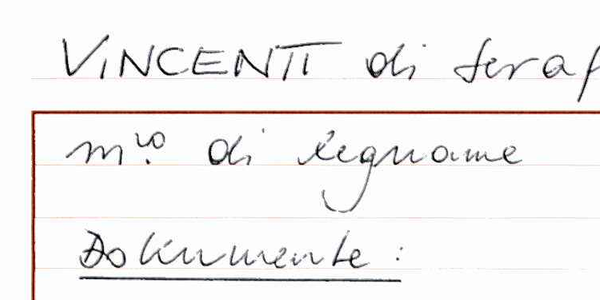 VINCENTI di Seraf
m.ro di legname
Dokumente: